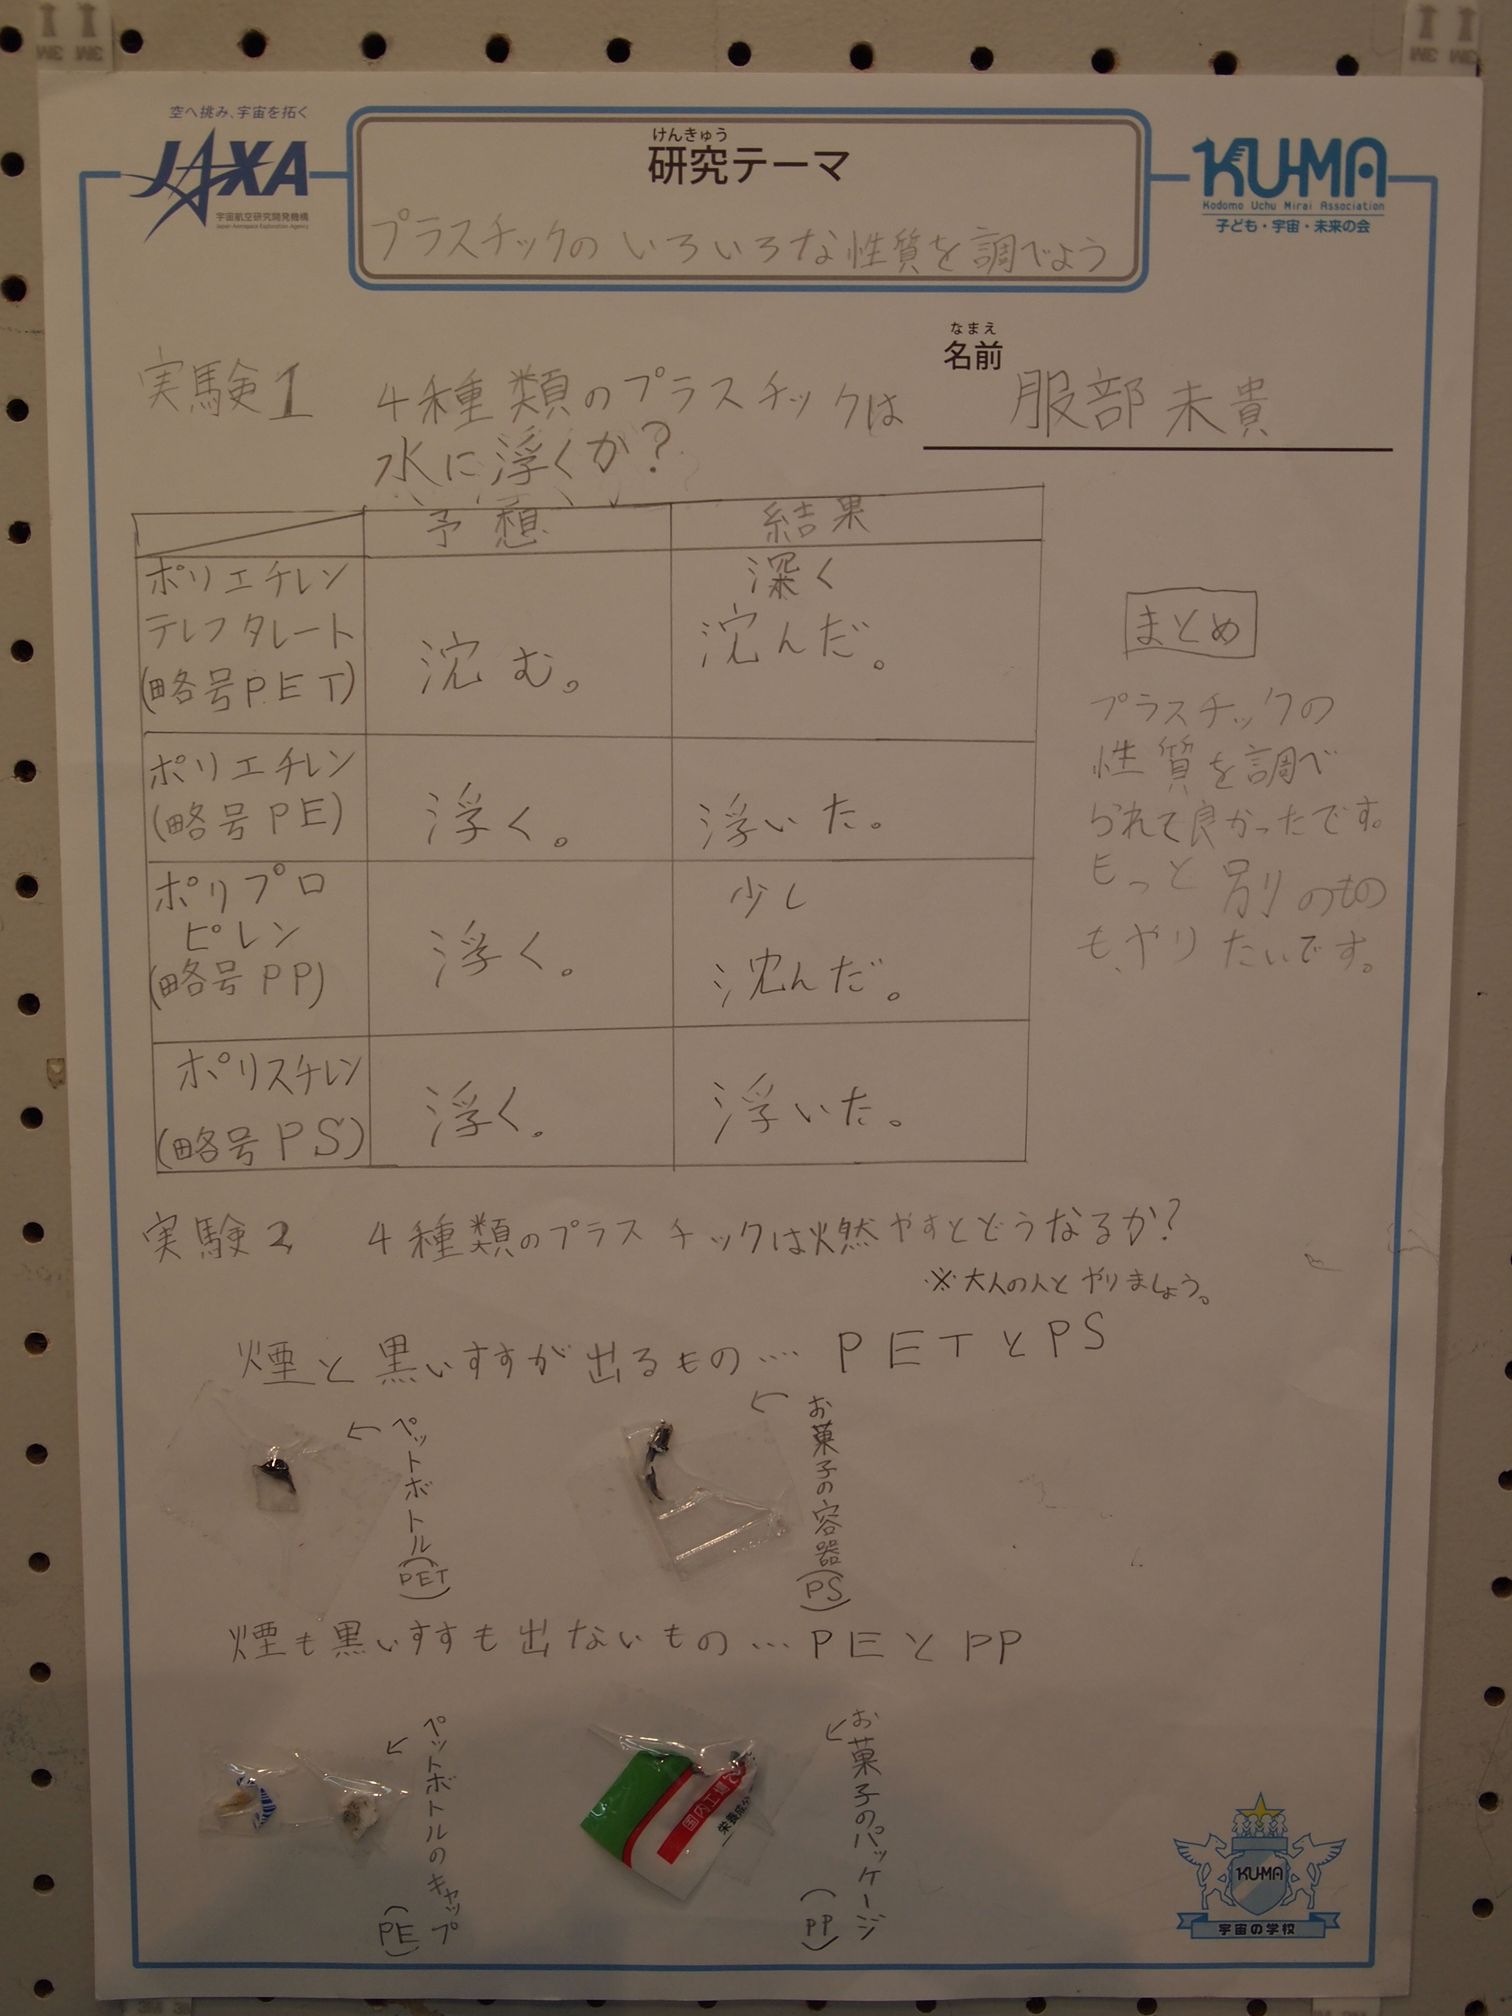 空へ挑み、宇宙を拓く
JAXA
宇宙航空研究開発機構
Japan Aerospace Exploration Agency
けんきゅう
研究テーマ
プラスチックのいろいろな性質を調べよう
KU-MA
Kodomo Uchu Mirai Association
子ども・宇宙・未来の会
なまえ
名前
服部未貴
実験1 4種類のプラスチックは
水に浮くか?
予想 結果
ポリエチレン
テレフタレート
(略号PET)
沈む。
深く
沈んだ。
ポリエチレン
(略号PE)
浮く。
浮いた。
ポリプロ
ピレン
(略号PP)
浮く。
少し
沈んだ。
ポリスチレン
(略号PS)
浮く。
浮いた。
まとめ
プラスチックの
性質を調べ
られて良かったです。
もっと別のもの
も、やりたいです。
実験2 4種類のプラスチックは燃やすとどうなるか?
※大人の人とやりましょう。
煙と黒いすすが出るもの…. PETとPS
←ペットボトル(PET)
←お菓子の容器(PS)
煙も黒いすすも出ないもの…PEとPP
←ペットボトルのキャップ(PE)
←お菓子のパッケージ(PP)
国内工場
栄養成分
KU-MA
宇宙の学校